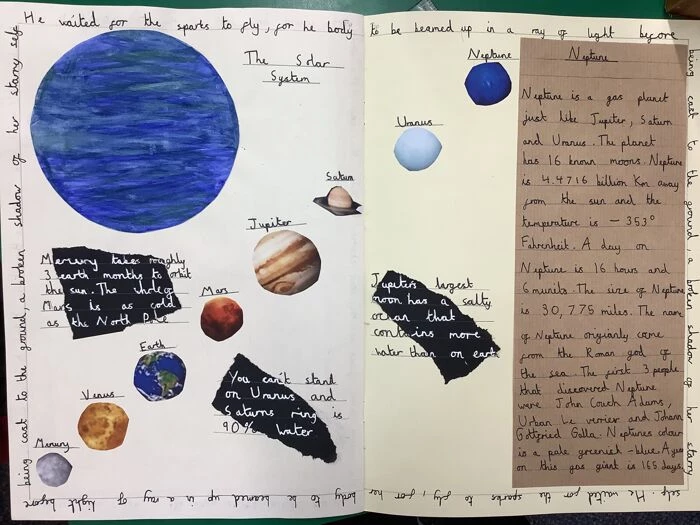 He waited for the sparks to fly, for he body to be beamed up in a ray of light before
being cast to the ground, a broken shadow of her starry
self. He waited for the sparks to fly, for her
body to be beamed up in a ray of light before
being cast to the ground, a broken shadow of her starry self
The Solar
System
Neptune
Uranus
Saturn
Jupiter
Mars
Earth
Venus
Mercury
Mercury takes roughly
3 earth months to orbit
the sun. The whole of
Mars is as cold
as the North Pole
You can't stand
on Uranus and
Saturns ring is
90% water
Jupiters largest
moon has a salty
ocean that
contains more
water than on earth
Neptune
Neptune is a gas planet
just like Jupiter, Saturn
and Uranus. The planet
has 16 known moons. Neptune
is 4.4716 billion Km away
from the sun and the
temperature is -353°
Fahrenheit. A day on
Neptune is 16 hours and
6 munits. The size of Neptune
is 30,775 miles. The name
of Neptune origianly came
from the Roman god of
the sea. The first 3 people
that discovered Neptune
were John Couch Adams,
Urban Le verrier and Johann
Gottfried Galla. Neptunes colour
is a pale greenish-blue. A year
on this gas giant is 165 days.